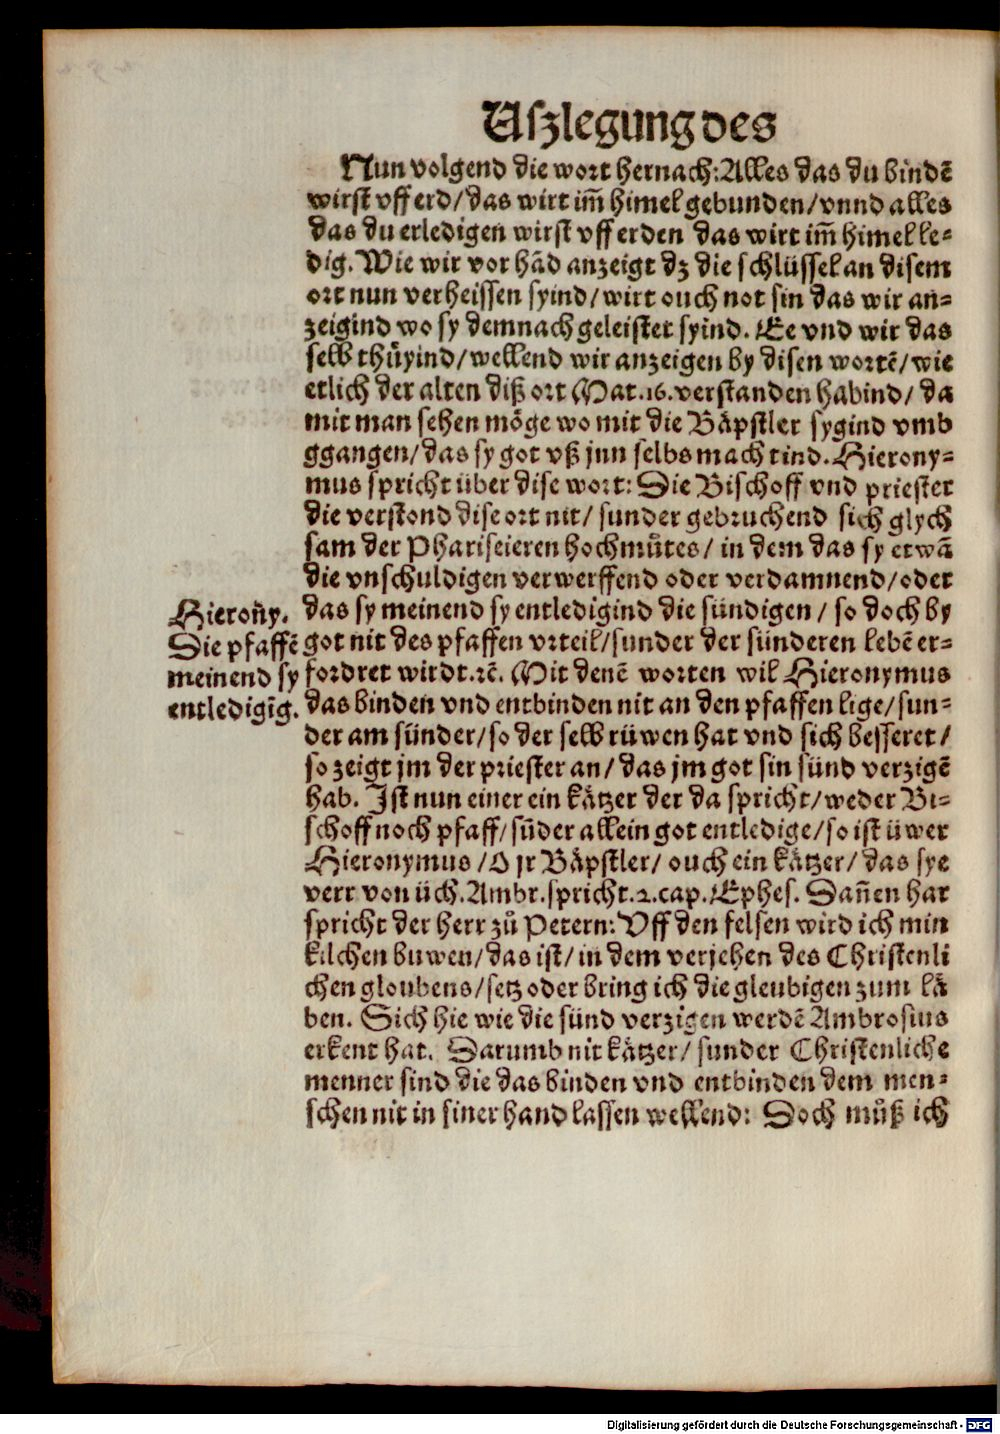 Uszlegung des
Nun volgend die wort hernach: Alles das du bindẽ
wirst vff erd/ das wirt im̃ himel gebunden/ vnnd alles
das du erledigen wirst vff erden das wirt im̃ himel le-
dig. Wie wir vor hãd anzeigt dz die schlüssel an disem
ort nun verheissen syind/ wirt ouch not sin das wir an-
zeigind wo sy demnach geleistet syind. Ee vnd wir das
selb thuͤyind/ wellend wir anzeigen by disen wortẽ/ wie
etlich der alten diß ort Mat.16. verstanden habind/ da
mit man sehen moͤge wo mit die Baͤpstler sygind vmb
ggangen/ das sy got vß jnn selbs machtind. Hierony-
mus spricht über dise wort: Die Bischoff vnd priester
die verstond dise ort nit/ sunder gebruchend sich glych
sam der Phariseieren hochmuͦtes/ in dem das sy etwã
die vnschuldigen verwerffend oder verdamnend/ oder
das sy meinend sy entledigind die sündigen/ so doch by
got nit des pfaffen vrteil/ sunder der sünderen lebẽ er-
fordret wirdt.ꝛc̃. Mit denẽ worten wil Hieronymus
das binden vnd entbinden nit an den pfaffen lige/ sun-
der am sünder/ so der selb rüwen hat vnd sich besseret/
so zeigt jm der priester an/ das jm got sin sünd verzigẽ
hab. Ist nun einer ein kaͤtzer der da spricht/ weder Bi-
schoff noch pfaff/ sũder allein got entledige/ so ist üwer
Hieronymus/ O jr Baͤpstler/ ouch ein kaͤtzer/ das sye
verr von üch. Ambr. spricht.2.cap. Ephes. Dañen har
spricht der herr zuͦ Petern: Vff den felsen wird ich min
kilchen buwen/ das ist/ in dem verjehen des Christenli
chen gloubens/ setz oder bring ich die gleubigen zum laͤ
ben. Sich hie wie die sünd verzigen werdẽ Ambrosius
erkent hat. Darumb nit kaͤtzer/ sunder Christenliche
menner sind die das binden vnd entbinden dem men-
schen nit in siner hand lassen wellend: Doch muͦß ich
Hieroñy.
Die pfaffẽ
meinend sy
entledigĩg.
Digitalisierung gefördert durch die Deutsche Forschungsgemeinschaft - DFG